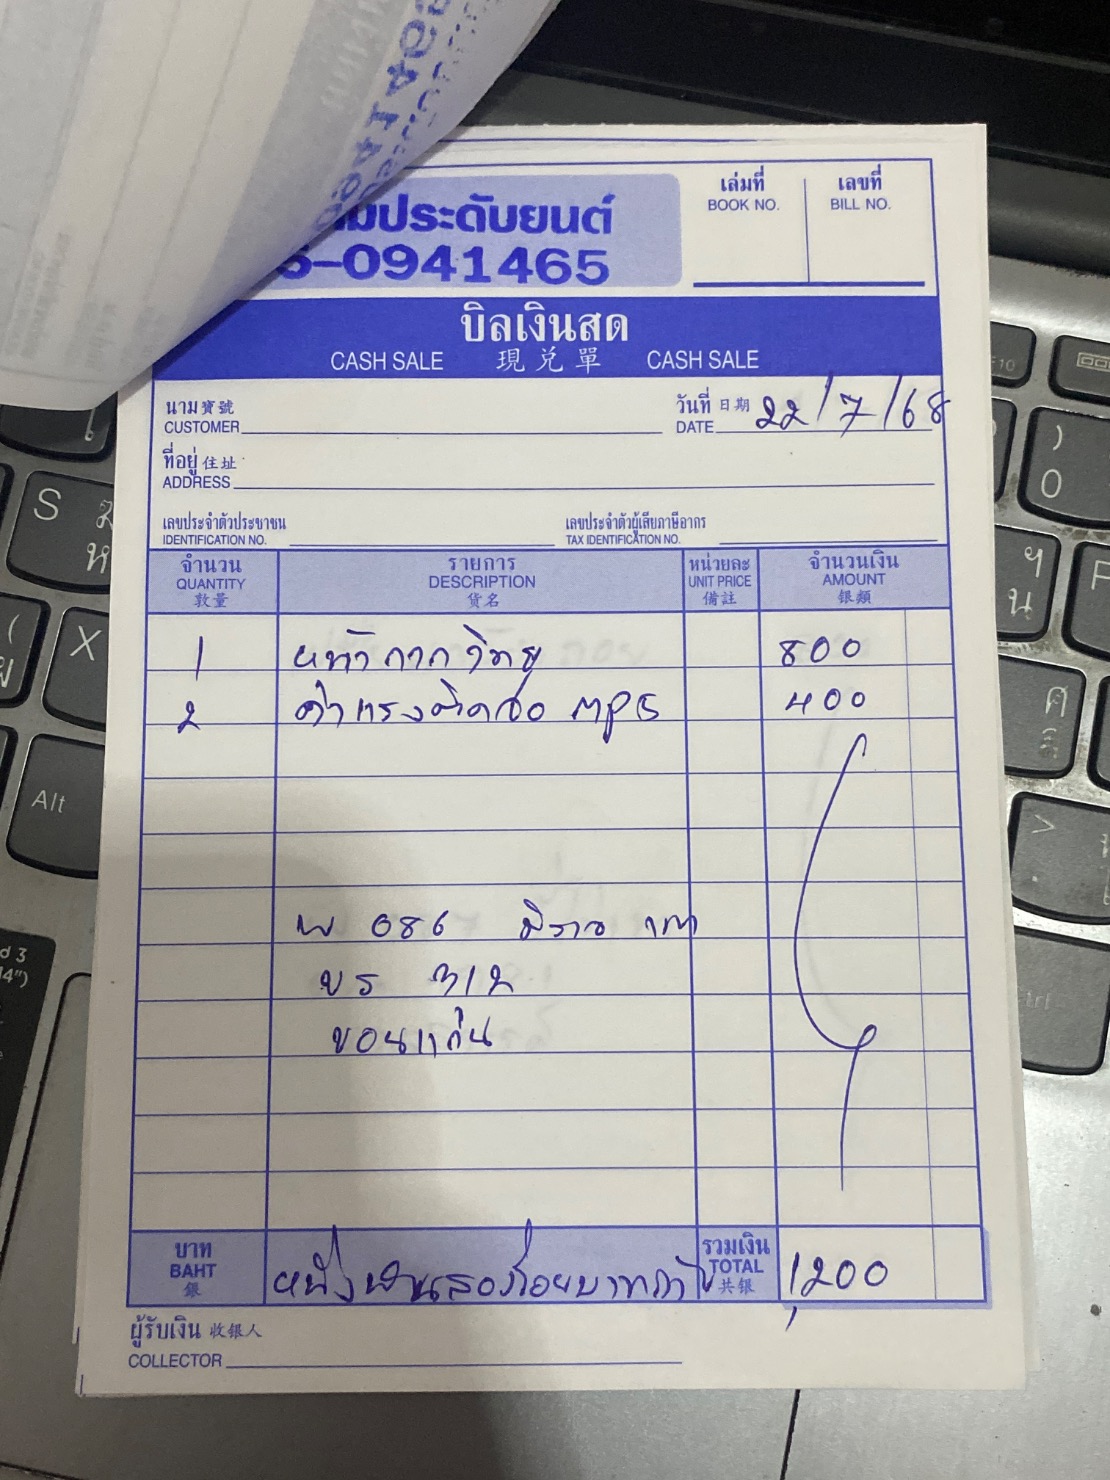 ประดับยนต์
-0941465
เล่มที่ เลขที่
BOOK NO. BILL NO.
บิลเงินสด
CASH SALE 現兌單 CASH SALE
นาม 寶號
CUSTOMER
วันที่ 日期
DATE 22/7/68
ที่อยู่ 住址
ADDRESS
เลขประจำตัวประชาชน
IDENTIFICATION NO.
เลขประจำตัวผู้เสียภาษีอากร
TAX IDENTIFICATION NO.
จำนวน รายการ หน่วยละ จำนวนเงิน
QUANTITY DESCRIPTION UNIT PRICE AMOUNT
数量 货名 備註 银類
1 หน้ากากวิทยุ 800
2 ค่าแรงติดจอ MP5 400
086 มิราจ เทา
ขร 312
ขอนแก่น
บาท
BAHT
銀
หนึ่งพันสองร้อยบาทถ้วน
รวมเงิน
TOTAL
共银
1,200
ผู้รับเงิน 收银人
COLLECTOR
S
ห
X
Alt
F10
)
0
น
>